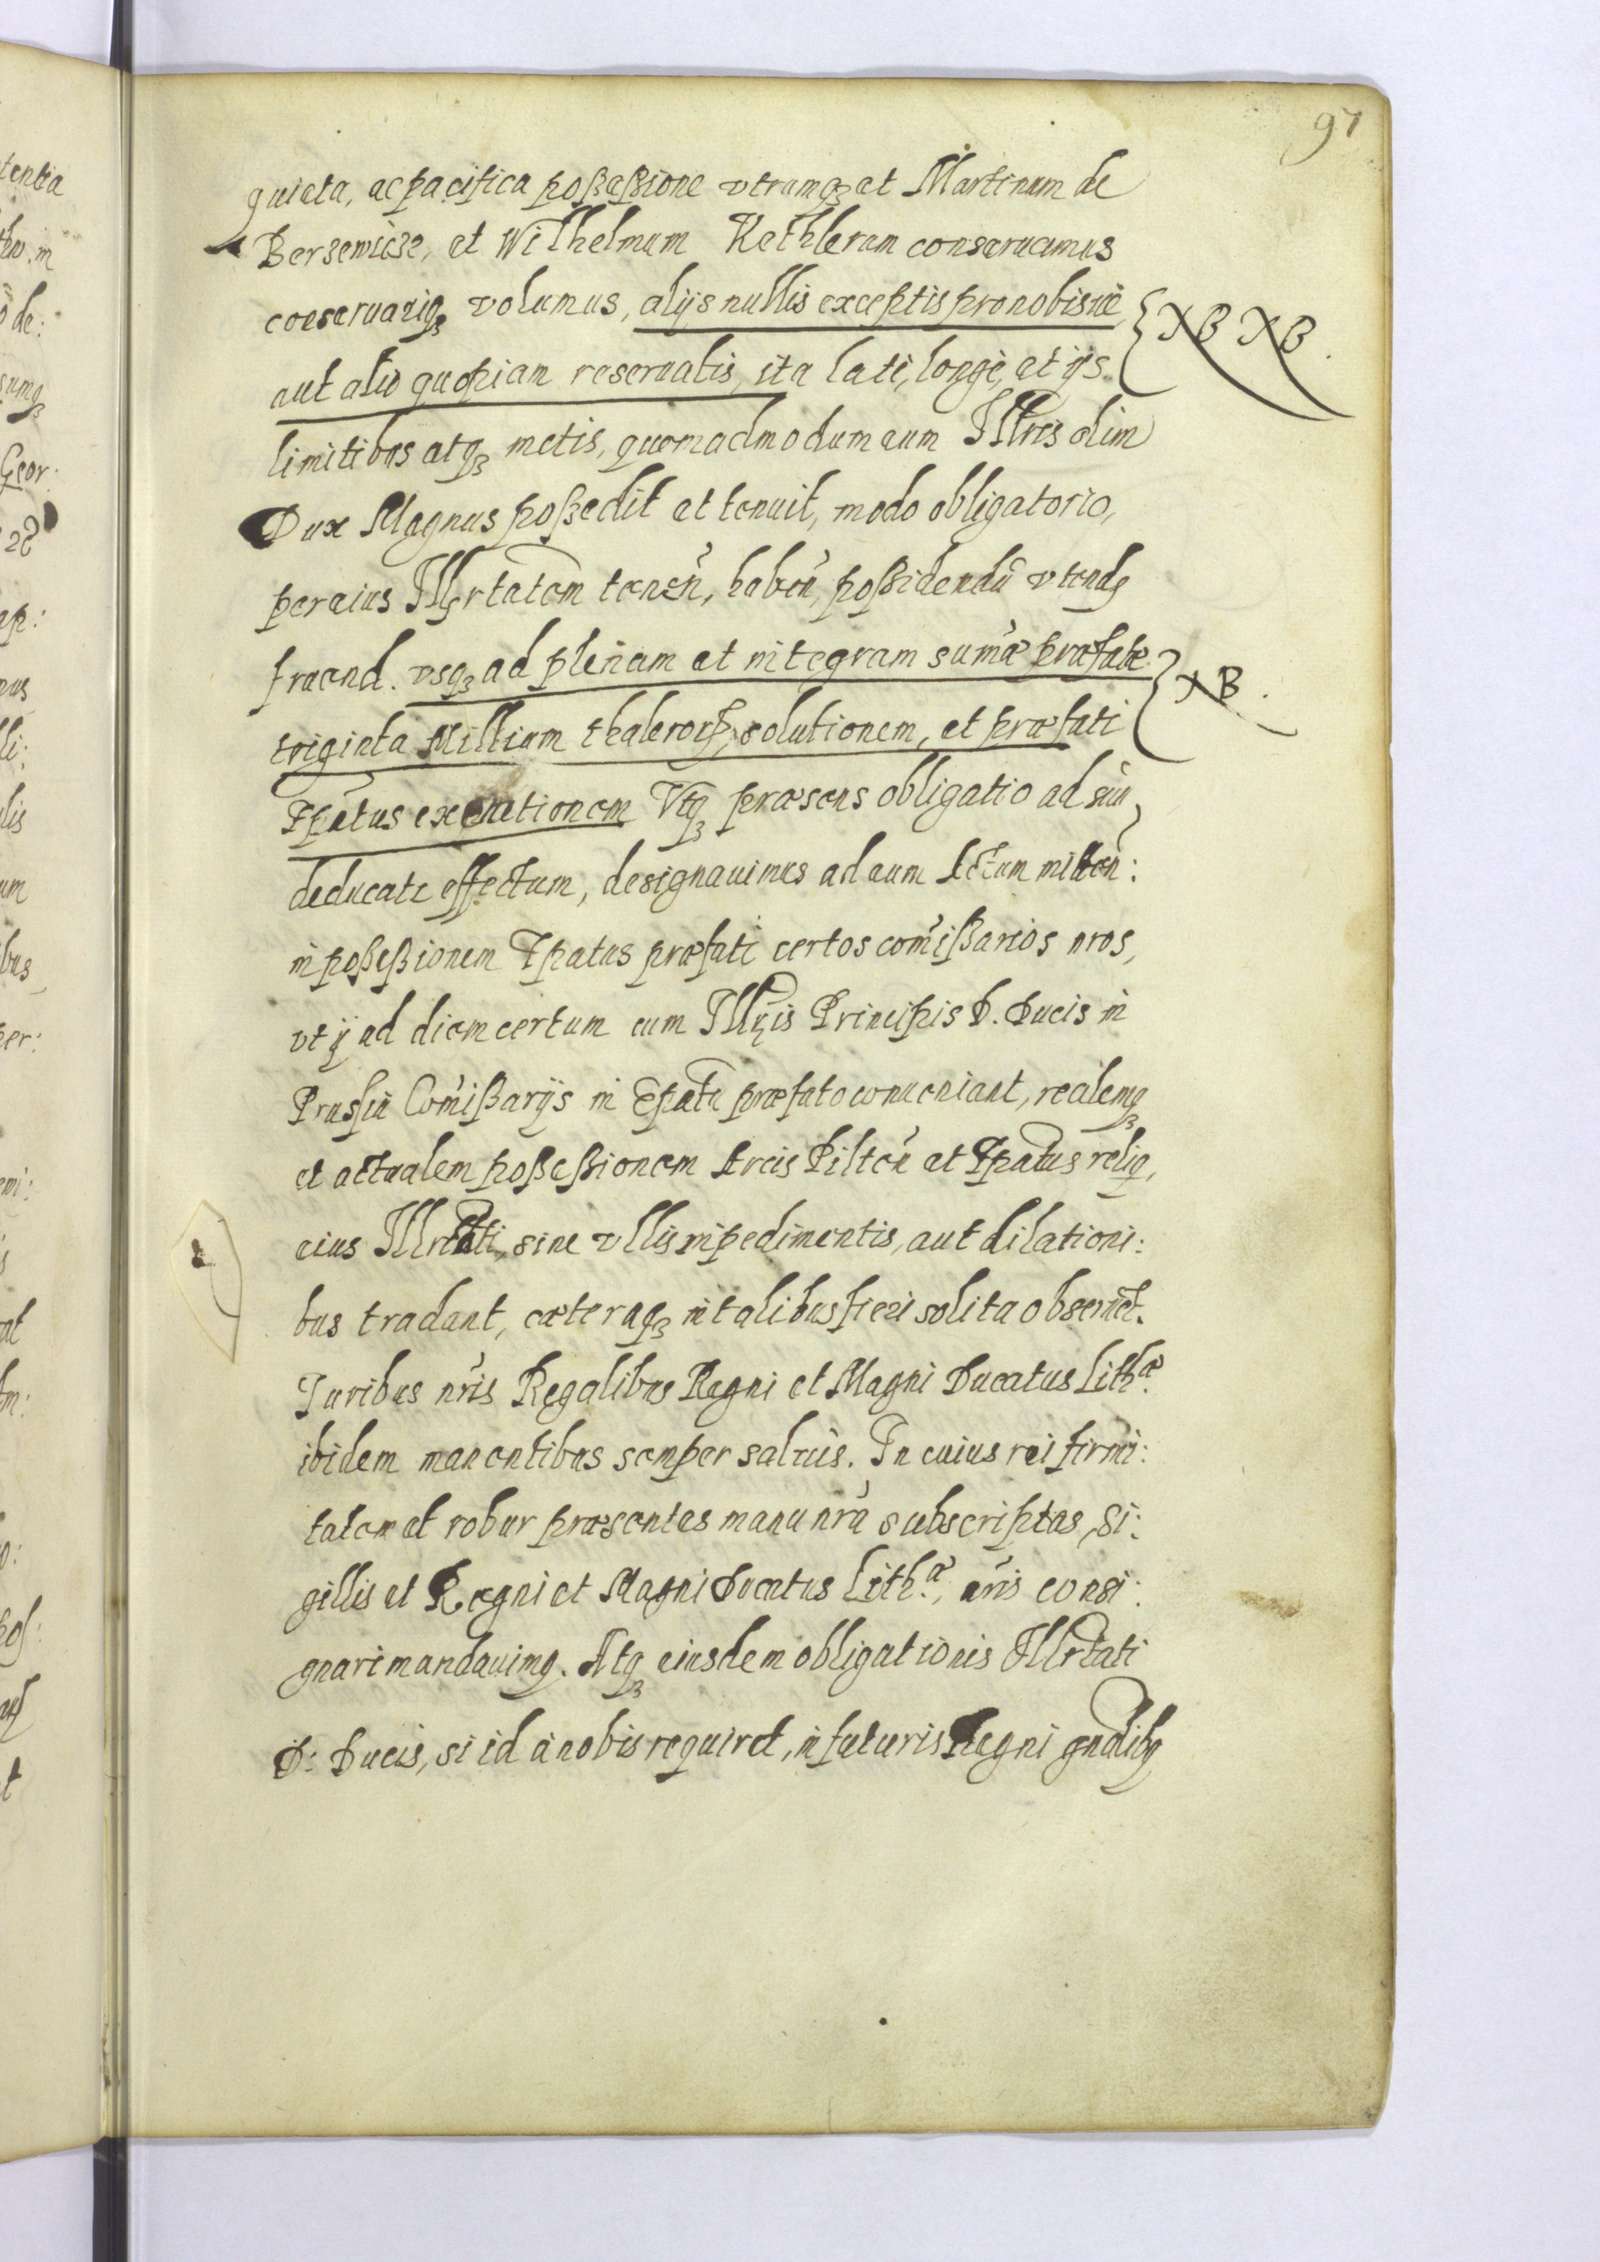 97
quieta, ac pacifica poßeßione vtrumq3 et Martinum de
Bersewicze, et Wilhelmum Kethlerum conseruamus
coeseruariq3 volumus, alijs nullis exceptis pro nobis vè
aut alio quopiam reseruatis, ita latè, longè, et ijs
NB NB.
limitibus atq3 metis, quemadmodum eum Illtris olim
Dux Magnus poßedit et tenuit, modo obligatorio,
per eius Illrtatem tenen̄, haben̄, poßidendū vtendq
fruend. vsq3 ad plenam et integram sumæ præfatæ
NB.
triginta Millium thalerorp, solutionem, et præfati
Epatus exemtionem Vtq3 præsens obligatio ad suū
deducatr effectum, designauimus ad eum Actum mitten:
in poßeßionem Epatus præfati certos com̄ißarios nros,
vt ij ad diem certum cum Illris Principis D. Ducis in
Prussia Com̄ißarijs in Epatu præfato conueniant, realemq3
et actualem poßeßionem Arcis Pilten̄ et Epatus reliq,
eius Illrtati, sine vllis impedimentis, aut dilationi:
bus tradant, cæteraq3 in talibus fieri solita obseruēt.
Juribus nr̄is Regalibus Regni et Magni Ducatus Lithæ.
ibidem manentibus semper saluis. In cuius rei firmi:
tatem et robur præsentes manu nrā subscriptas, si:
gillis et Regni et Magni Ducatus Lithæ, nr̄is consi:
gnari mandauimq. Atq3 eiusdem obligationis Illrtati
D: Ducis, si id à nobis requiret, in futuris Regni gnalibq